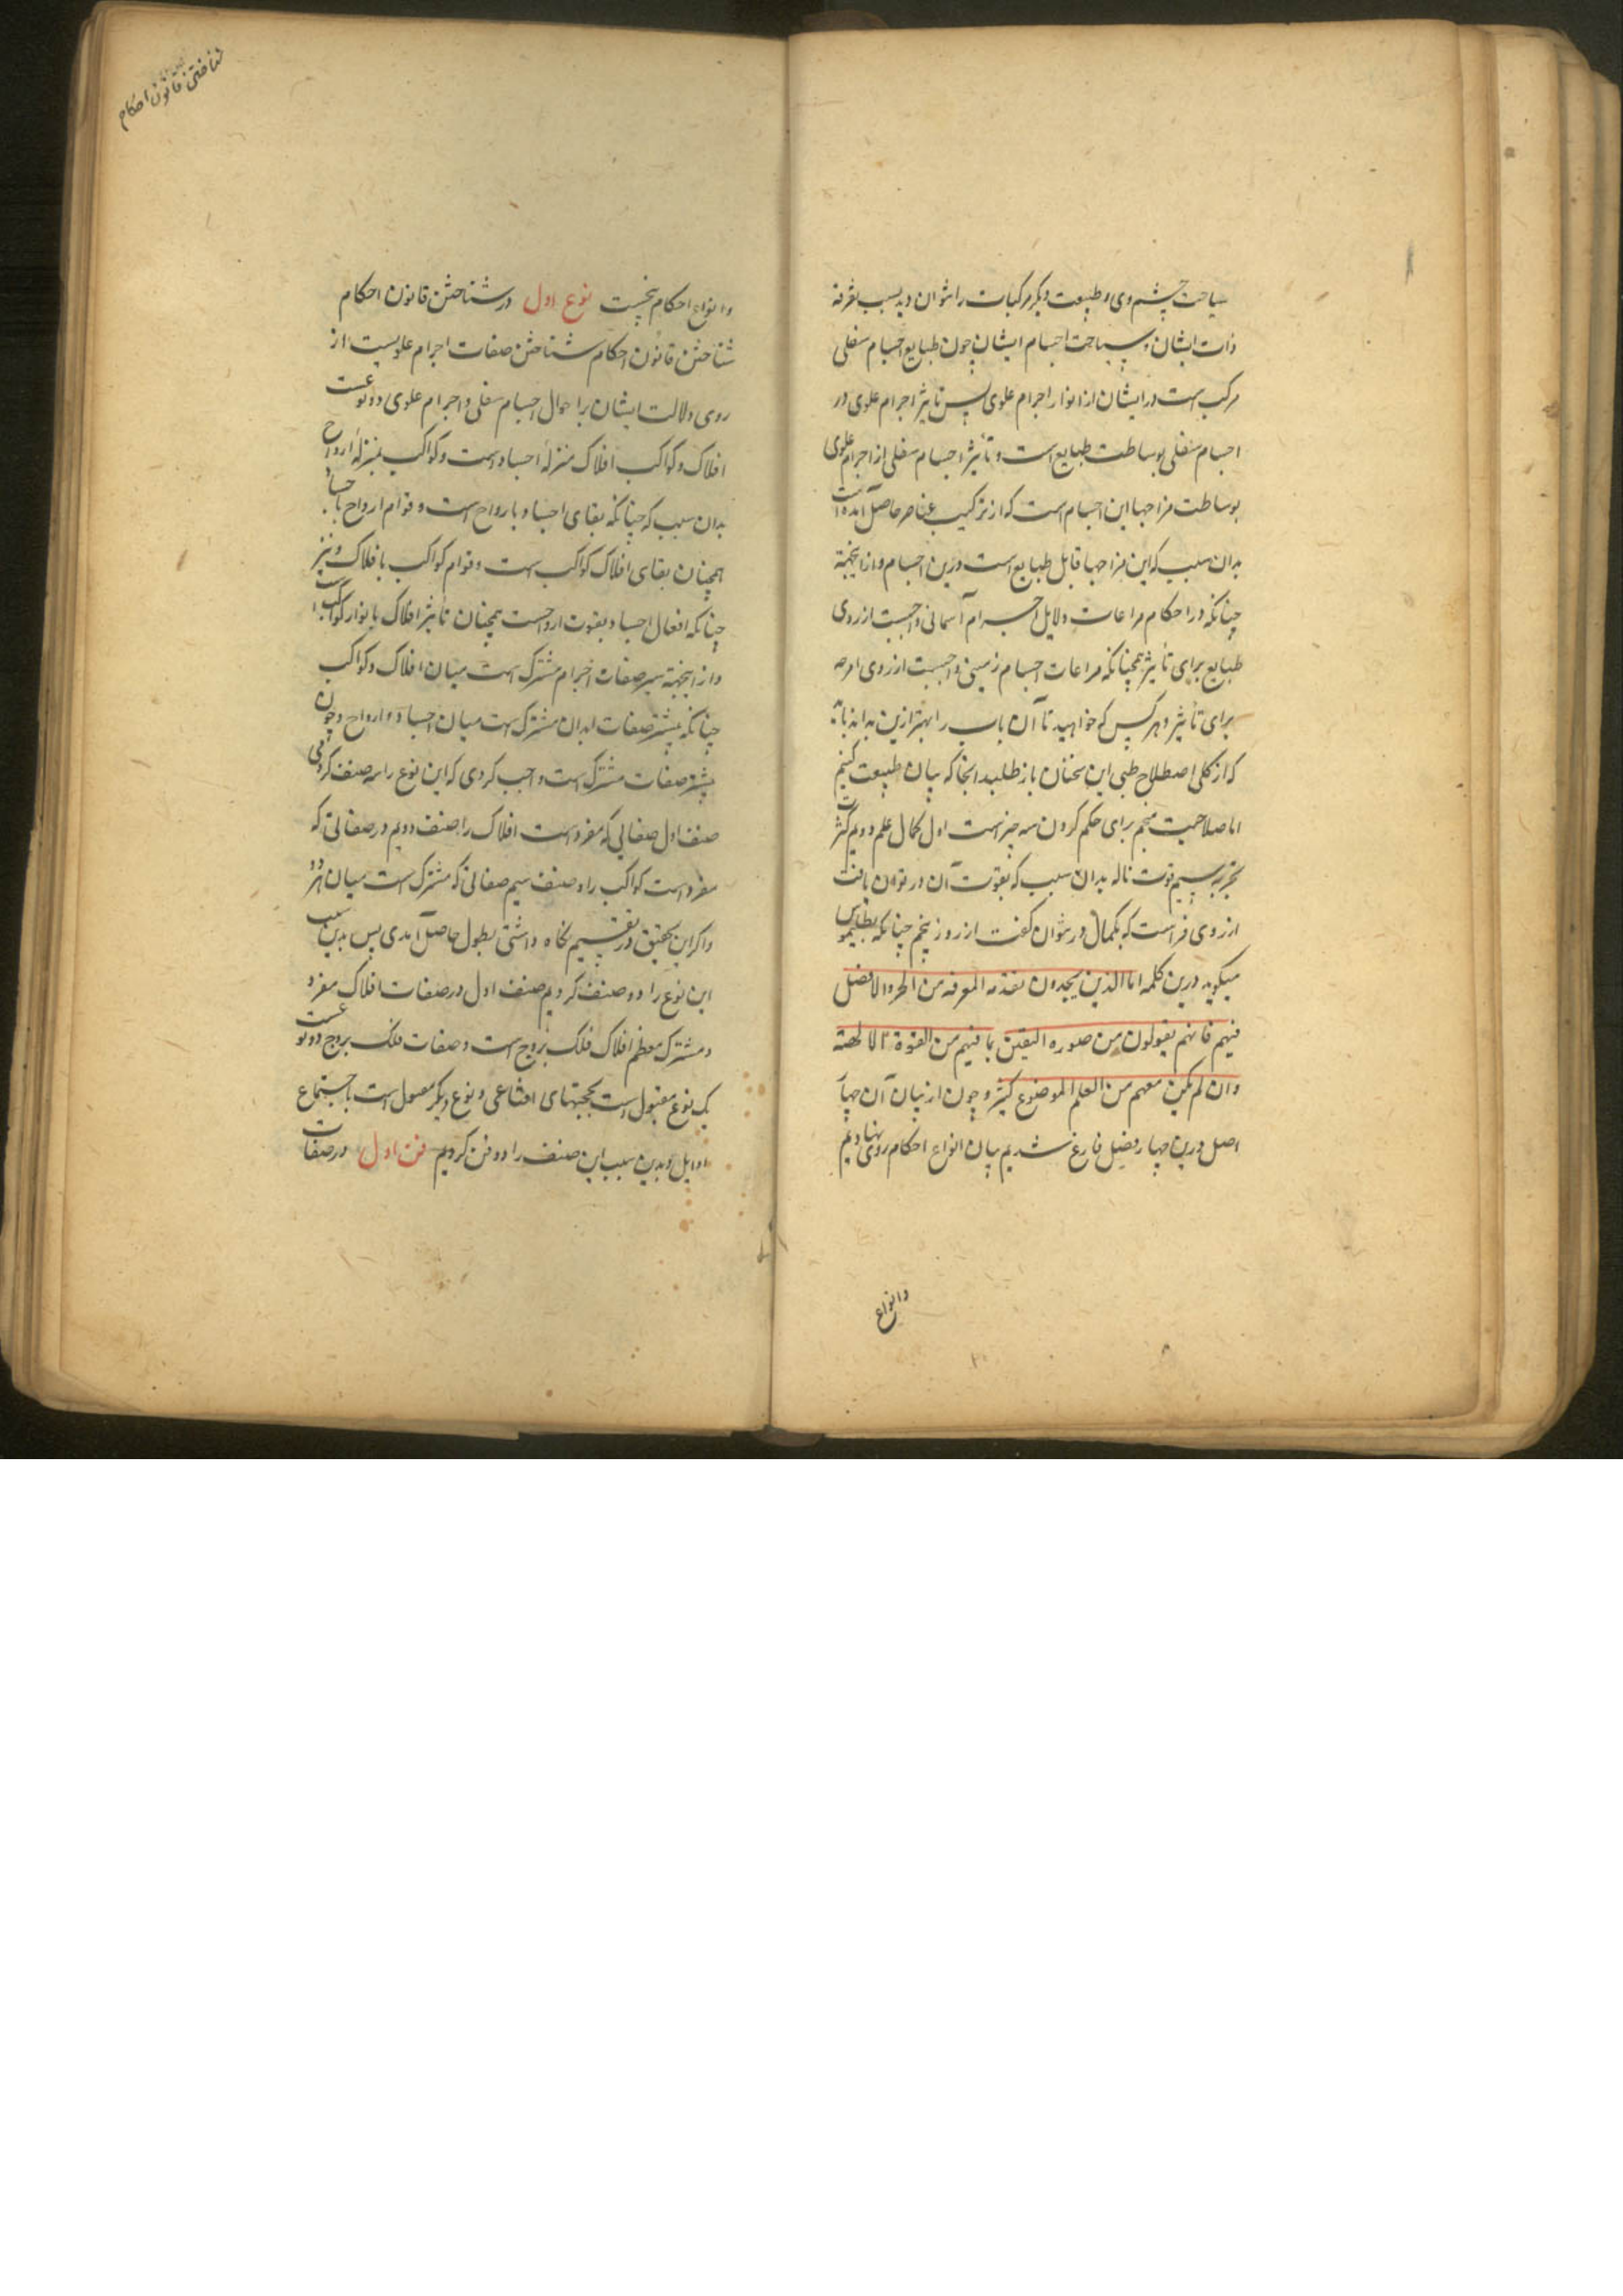 سیاحت چشم وی و طبیعت دیگر مرکبات را نتوان دید بسبب تفرقه
ذات ایشان و سیاحت اجسام ایشان چون طبایع اجسام سفلی
مرکب است در ایشان از انوار اجرام علوی پس تاثیر اجرام علوی در
اجسام سفلی بوساطت طبایع است و تأثیر اجسام سفلی از اجرام علوی
بوساطت مزاجها این اجسام است که از ترکیب عناصر حاصل آمده است
بدان سبب که این مزاجها قابل طبایع است درین اجسام و از اینجهة
چنانکه در احکام مراعات دلایل اجرام آسمانی واجبست از روی
طبایع برای تأثیر همچنانکه مراعات اجسام زمینی واجبست از روی امزجه
برای تأثیر و هر کس که خواهید تا آن باب را بهتر ازین بداند باید
که از کلی اصطلاح طبی این سخنان باز طلبد آنجا که بیان طبیعت کنیم
اما صلاحیت منجم برای حکم کردن سه چیز است اول کمال علم دویم کثرت
تجربه سیم قوت تاله بدان سبب که بقوت آن در توان یافت
از روی فراست که بکمال در نتوان گفت از روز پنجم چنانکه بطلیموس
میگوید درین کلمه اما الذین یجدون تقدمه المعرفه من الجزو الافضل
فیهم فانهم یقولون من صوره الیقین بما فیهم من القوة الالهیته
وان لم یکن معهم من العلم الموضوع کثیر و چون از بیان آن چهار
اصل درین چهار فصل فارغ شدیم بیان انواع احکام روی نهادیم
وانواع
شناختن قانون احکام
و انواع احکام پنجست نوع اول در شناختن قانون احکام
شناختن قانون احکام شناختن صفات اجرام علویست از
روی دلالت ایشان بر احوال اجسام سفلی و اجرام علوی دو نوعست
افلاک و کواکب افلاک بمنزلهٔ اجساد است و کواکب بمنزلهٔ ارواح
بدان سبب که چنانکه بقای اجساد بارواح است و قوام ارواح باجساد
همچنان بقای افلاک بکواکب است و قوام کواکب بافلاک و نیز
چنانکه افعال اجساد بقوت ارواحست همچنان تأثیر افلاک بانوار کواکبست
و از اینجهة بیشتر صفات اجرام مشترک است میان افلاک و کواکب
چنانکه بیشتر صفات ابدان مشترک است میان اجساد و ارواح و چون
بیشتر صفات مشترک است واجب کردی که این نوع را سه صنف کردمی
صنف اول صفاتی که مفرد است افلاک را صنف دویم در صفاتی که
مفرد است کواکب را و صنف سیم صفاتی که مشترک است میان هر دو
و اگر این تحقیق در تقسیم نگاه داشتی بطول حاصل آمدی پس بدین سبب
این نوع را دو صنف کردیم صنف اول در صفات افلاک مفرد
و مشترک معظم افلاک فلک بروج است و صفات فلک بروج دو نوعست
یک نوع مقبول است بحجتهای اقناعی و نوع دیگر معمول است باجتماع
اوایل و بدین سبب این صنف را دو فن کردیم فن اول در صفات